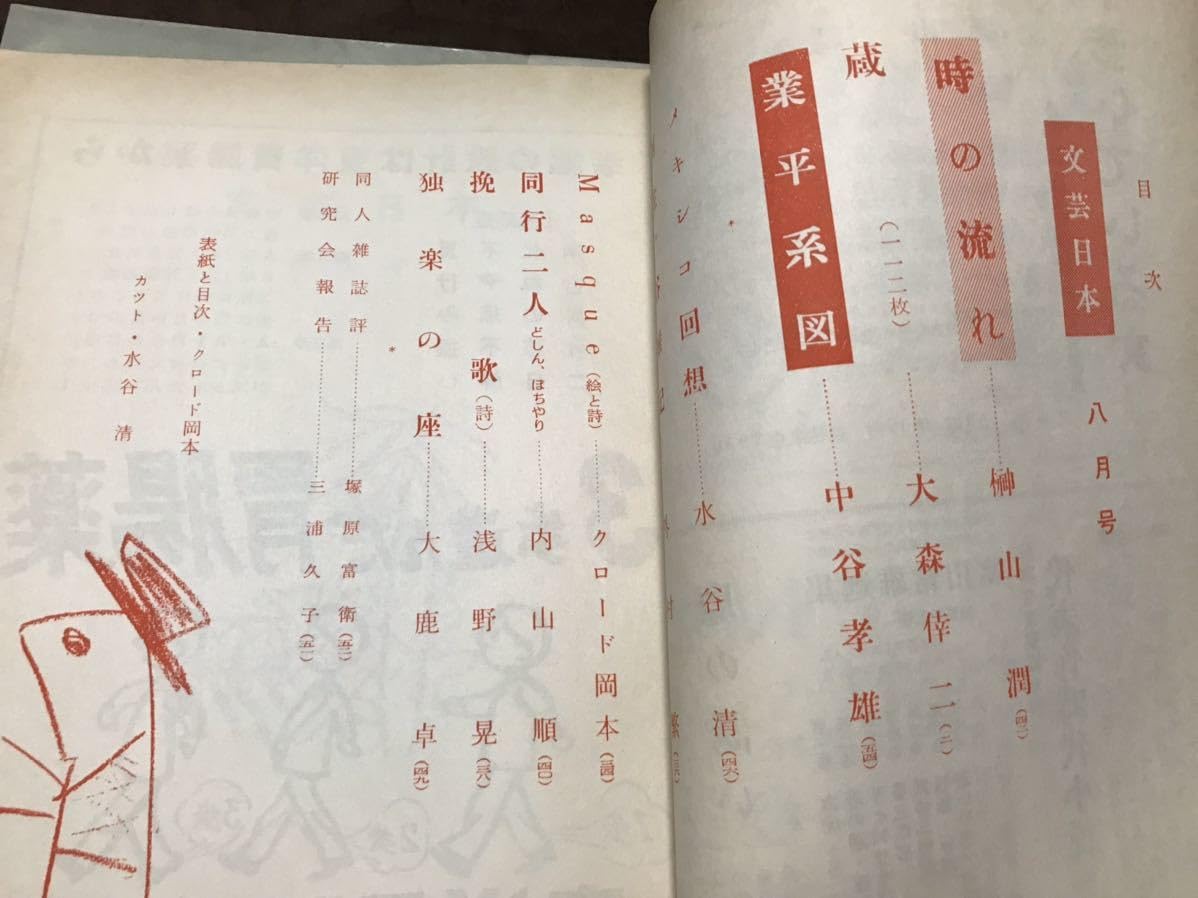 目次
文芸日本
八月号
時の流れ……榊山潤(四二)
蔵(一一二枚)……大森倖二(二)
業平系図……中谷孝雄(五四)
*
メキシコ回想……水谷清(四六)
Masque(絵と詩)……クロード岡本(三四)
同行二人どしん、ほちやり……内山順(四〇)
挽歌(詩)……浅野晃(三八)
独楽の座……大鹿卓(四九)
*
同人雑誌評……塚原富衛(五二)
研究会報告……三浦久子(五一)
表紙と目次・クロード岡本
カット・水谷清